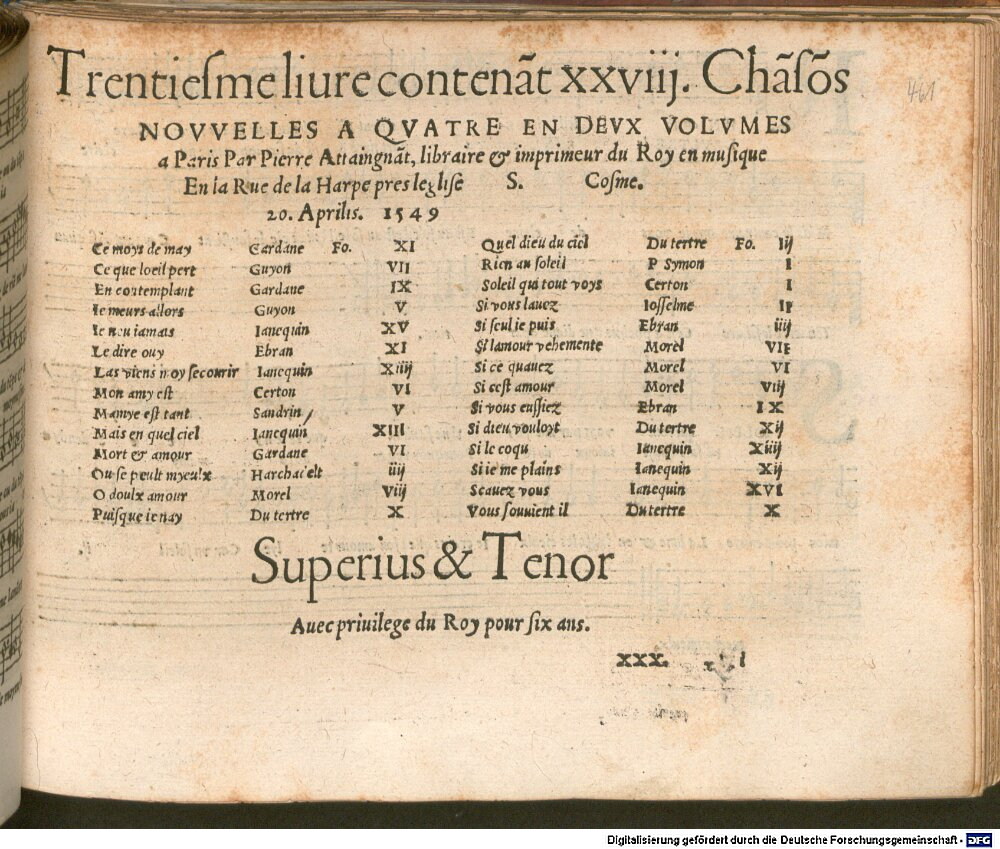 Trentiesme liure contenãt xxviij. Chãsõs
461
NOVVELLES A QVATRE EN DEVX VOLVMES
a Paris Par Pierre Attaingnãt, libraire & imprimeur du Roy en musique
En la Rue de la Harpe pres leglise S. Cosme.
20. Aprilis. 1549
Ce moys de may Gardane Fo. XI
Ce que loeil pert Guyon VII
En contemplant Gardane IX
Ie meurs allors Guyon V
Ie neu iamais Ianequin XV
Le dire ouy Ebran XI
Las viens moy secourir Ianequin Xiiij
Mon amy est Certon VI
Mamye est tant Sandrin V
Mais en quel ciel Ianequin XIII
Mort & amour Gardane VI
Ou se peult myeulx Harchadelt iiij
O doulx amour Morel Viij
Puisque ienay Du tertre X
Quel dieu du ciel Du tertre Fo. Iij
Rien au soleil P Symon I
Soleil qui tout voys Certon I
Si vous lauez Iosselme
Si seul ie puis Ebran iiij
Si lamour vehemente Morel
Si ce quauez Morel VI
Si cest amour Morel Viij
Si vous eussiez Ebran IX
Si dieu vouloyt Du tertre Xij
Si le coqu Ianequin Xiiij
Si ie me plains Ianequin Xij
Scauez vous Ianequin XVI
Vous souuient il Du tertre X
Superius & Tenor
Auec priuilege du Roy pour six ans.
XXX. i
Digitalisierung gefördert durch die Deutsche Forschungsgemeinschaft - DFG